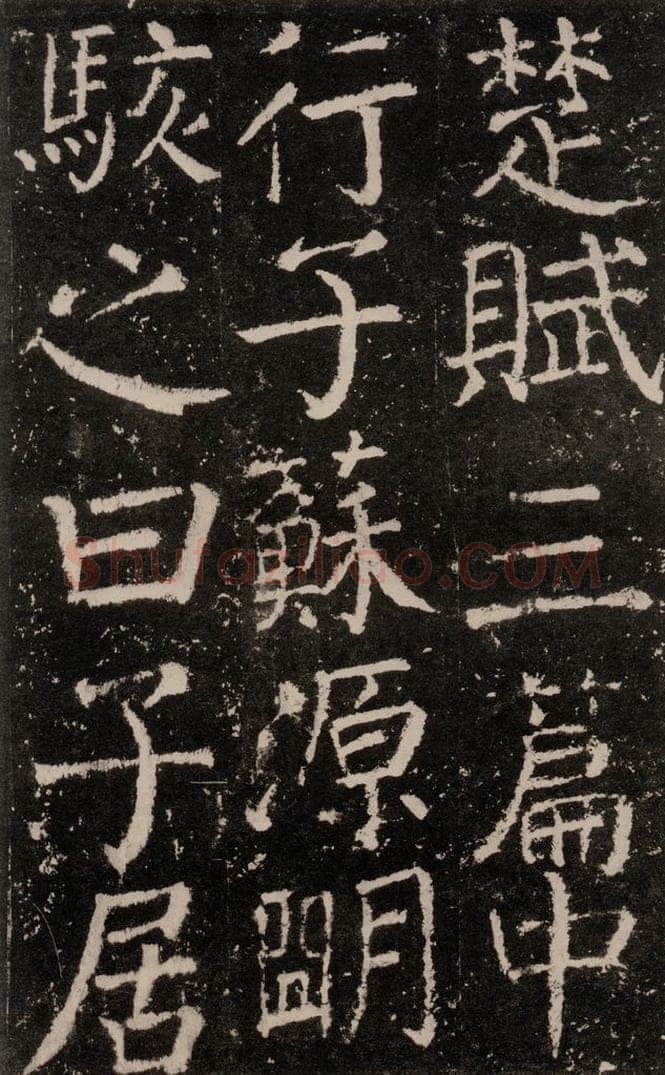 楚賦三篇中
行子蘇源明
駭之曰子居
Shufaziliao.COM